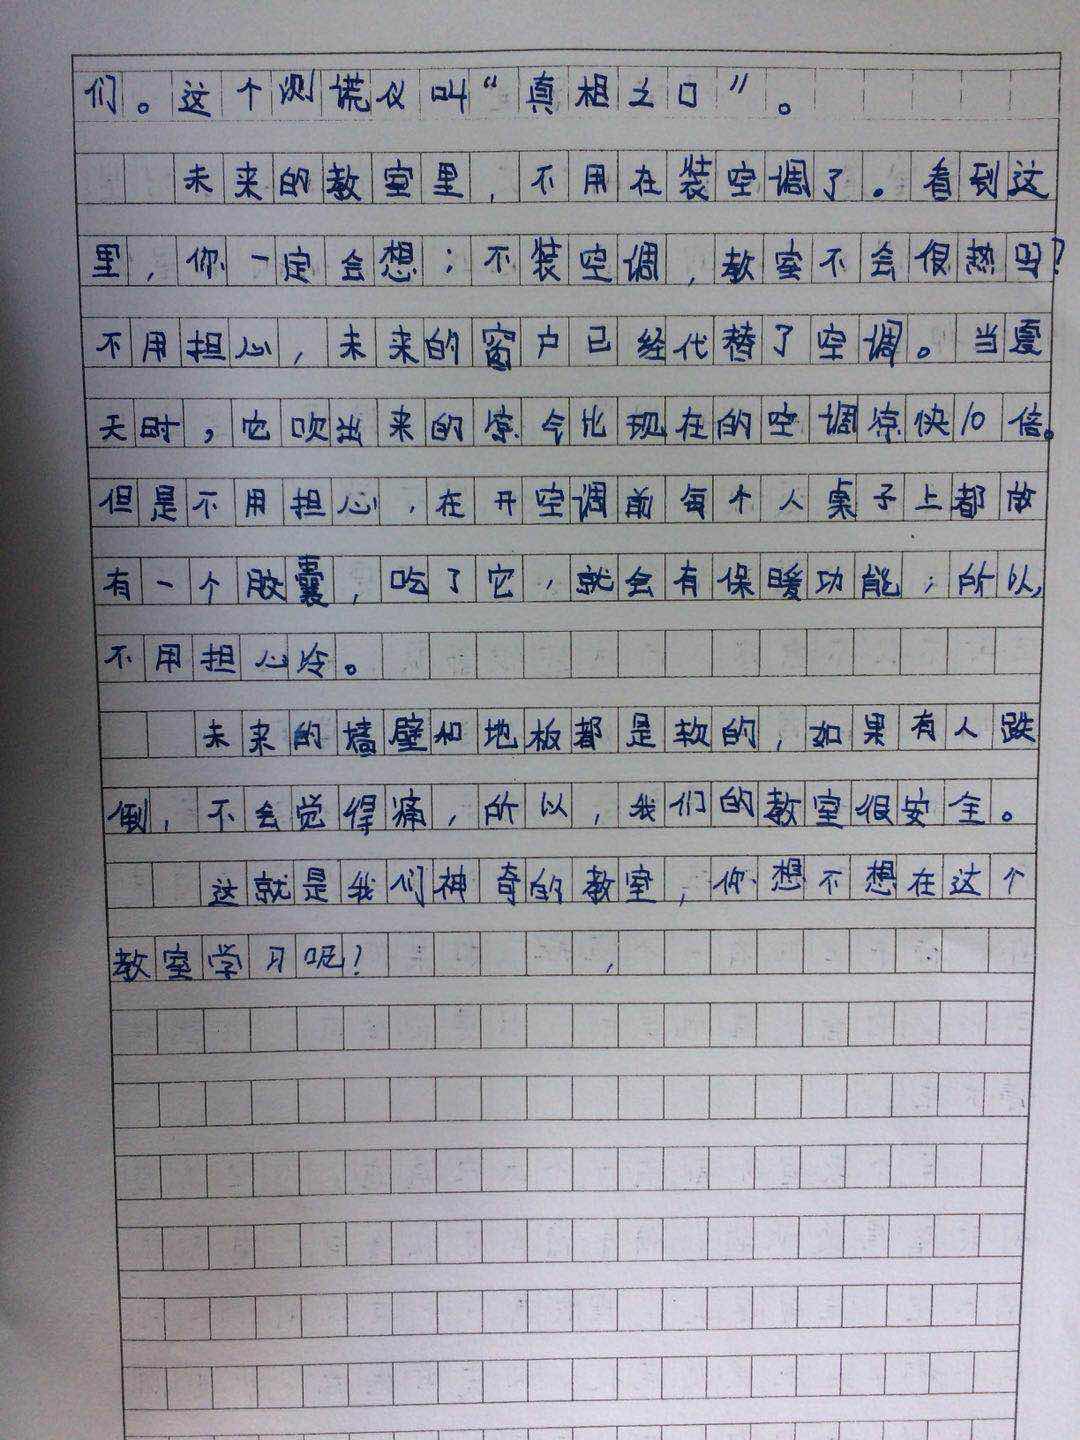 们。这个测谎仪叫“真相之口”。
未来的教室里，不用在装空调了。看到这
里，你一定会想：不装空调，教室不会很热吗？
不用担心，未来的窗户已经代替了空调。当夏
天时，它吹出来的凉气比现在的空调凉快10倍。
但是不用担心，在开空调前每个人桌子上都放
有一个胶囊，吃了它，就会有保暖功能，所以，
不用担心冷。
未来的墙壁和地板都是软的，如果有人跌
倒，不会觉得痛，所以，我们的教室很安全。
这就是我们神奇的教室，你想不想在这个
教室学习呢？